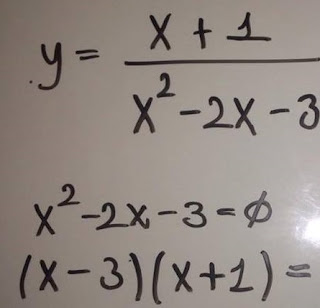 y = x + 1 / x² - 2x - 3
x² - 2x - 3 = ϕ
(x - 3)(x + 1) =